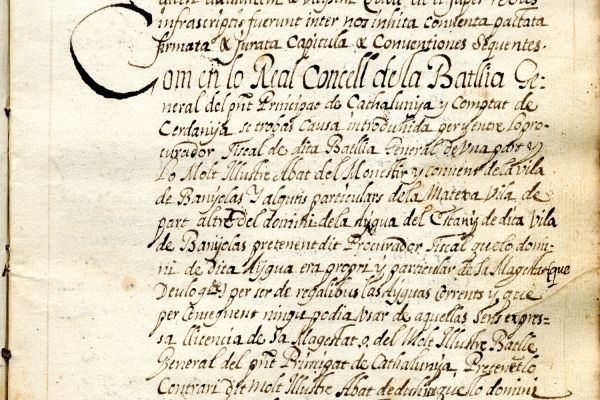 infrascriptis fuerunt inter nos inhita conventa pactata
firmata & jurata Capitula & Conventiones Sequentes.
Com en lo Real Concell de la Batllia Ge-
neral del pnt Principat de Cathalunya y Comptat de
Cerdanya se trobas causa introduhida per y entre lo pro-
curador Fiscal de dita Batllia General de una part y
Lo Molt Illustre Abat del Monestir y convent de la vila
de Banyolas Y alguns particulars de la Matexa Vila de
part altre Del domini de la aygua del Estany de dita Vila
de Banyolas pretenent dit Procurador Fiscal que lo domi-
ni de Dita Aygua era propri y particular de Sa Magestat (que
Deu lo gde) per ser de regalibus las ayguas corrents y que
per conseguent ningu podia Usar de aquellas Sens expres-
sa llicencia de Sa Magestat o, del Molt Illustre Batlle
General del pnt Principat de Cathalunya, Pretenent lo
Contrari dit Molt Illustre Abat deduhit que lo domini